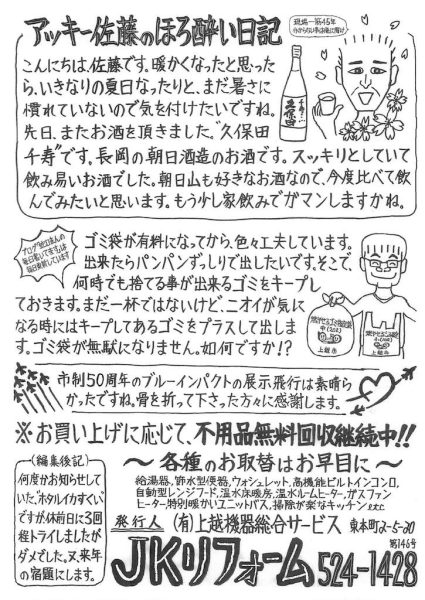 アッキー佐藤のほろ酔い日記
現場一筋45年
こんにちは、佐藤です。暖かくなったと思った
ら、いきなりの夏日なったりと、まだ暑さに
慣れていないので気を付けたいですね。
先日、またお酒を頂きました。"久保田
千寿"です。長岡の朝日酒造のお酒です。スッキリとしていて
飲み易いお酒でした。朝日山も好きなお酒なので、今度比べて飲
んでみたいと思います。もう少し家飲みでガマンしますかね。
久保田
ゴミ袋が有料になってから、色々工夫しています。
出来たらパンパンずっしりで出したいです。そこで、
何時でも捨てる事が出来るゴミをキープし
ておきます。まだ一杯ではないけど、ニオイが気に
なる時にはキープしてあるゴミをプラスして出しま
す。ゴミ袋が無駄になりません。如何ですか!?
上越市
上越市
市制50周年のブルーインパクトの展示飛行は素晴ら
かったですね。骨を折って下さった方々に感謝します。
※お買い上げに応じて、不用品無料回収継続中!!
〜各種のお取替はお早目に〜
給湯器、節水型便器、ウォシュレット、高機能ビルトインコンロ、
自動型レンジフード、温水床暖房、温水ルームヒーター、ガスファン
ヒーター特別暖かいユニットバス、掃除が楽なキッチンetc
(編集後記)
何度かお知らせし
ていた、"ホタルイカすくい"
ですが休前日に3回
程トライしましたが
ダメでした。又、来年
の宿題にします。
発行人 (有)上越機器総合サービス 東本町2-5-20
第146号
JKリフォーム 524-1428